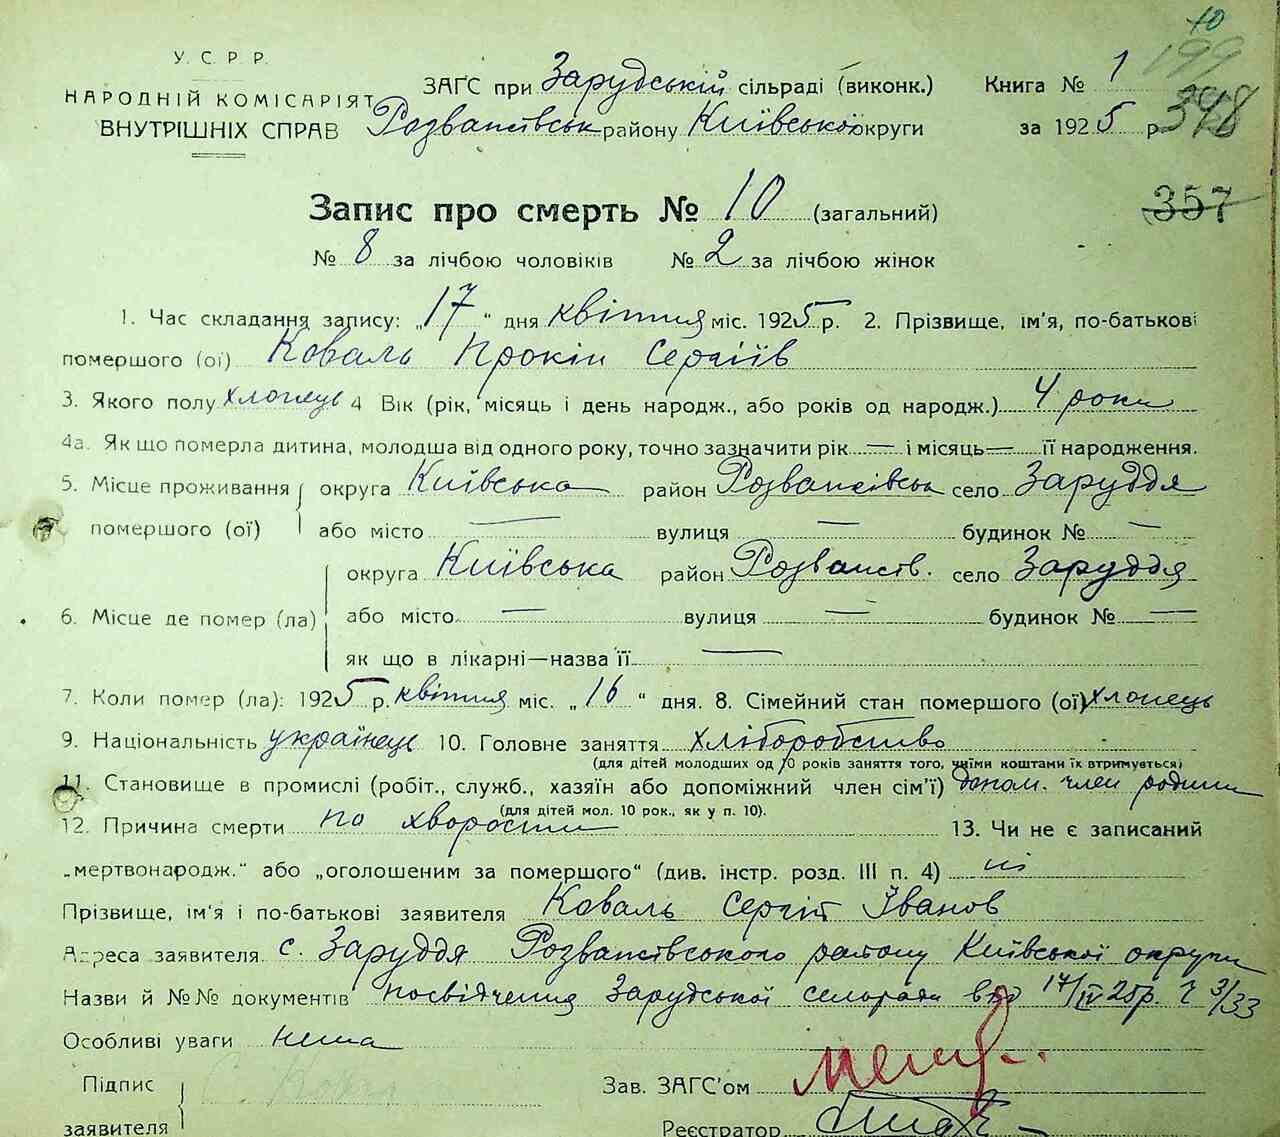 10
199
У. С. Р. Р.
НАРОДНІЙ КОМІСАРІЯТ
ВНУТРІШНІХ СПРАВ
ЗАГС при Зарудській сільраді (виконк.)
Розважівськ району Київської округи
Книга № 1
за 1925 р.
348
Запис про смерть № 10 (загальний)
357
№ 8 за лічбою чоловіків № 2 за лічбою жінок
1. Час складання запису: „17“ дня квітня міс. 1925 р. 2. Прізвище, ім'я, по-батькові
помершого (ої) Коваль Прокіп Сергіїв
3. Якого полу хлопець 4 Вік (рік, місяць і день народж., або років од народж.) 4 роки
4а. Як що померла дитина, молодша від одного року, точно зазначити рік — і місяць — її народження.
5. Місце проживання округа Київська район Розважівськ село Заруддя
помершого (ої) або місто — вулиця — будинок № —
округа Київська район Розважів. село Заруддя
6. Місце де помер (ла) або місто — вулиця — будинок № —
як що в лікарні—назва її —
7. Коли помер (ла): 1925 р. квітня міс. „16“ дня. 8. Сімейний стан помершого (ої) хлопець
9. Національність українець 10. Головне заняття хліборобство
(для дітей молодших од 10 років заняття того, чиїми коштами їх втримується)
11. Становище в промислі (робіт., служб., хазяїн або допоміжний член сім'ї) допом. член родини
(для дітей мол. 10 рок., як у п. 10).
12. Причина смерти по хворости 13. Чи не є записаний
„мертвонародж.“ або „оголошеним за помершого“ (див. інстр. розд. III п. 4) ні
Прізвище, ім'я і по-батькові заявителя Коваль Сергій Іванов
Адреса заявителя с. Заруддя Розважівського району Київської округи
Назви й №№ документів посвідчення Зарудської сельради від 17/IV 25р. Ч 3/33
Особливі уваги нема
Підпис
заявителя
Зав. ЗАГС'ом
Реєстратор